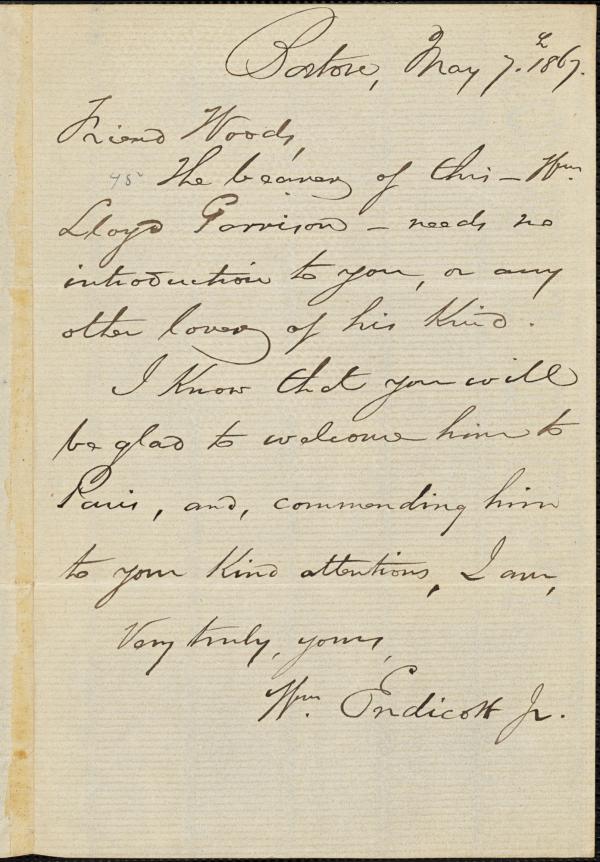 Boston, May 7. 1867.
Friend Woods,
The bearer of this - Wm.
Lloyd Garrison - needs no
introduction to you, or any
other lover of his Kind.
I Know that you will
be glad to welcome him to
Paris, and, commending him
to your Kind attentions, I am,
Very truly, yours,
Wm. Endicott Jr.